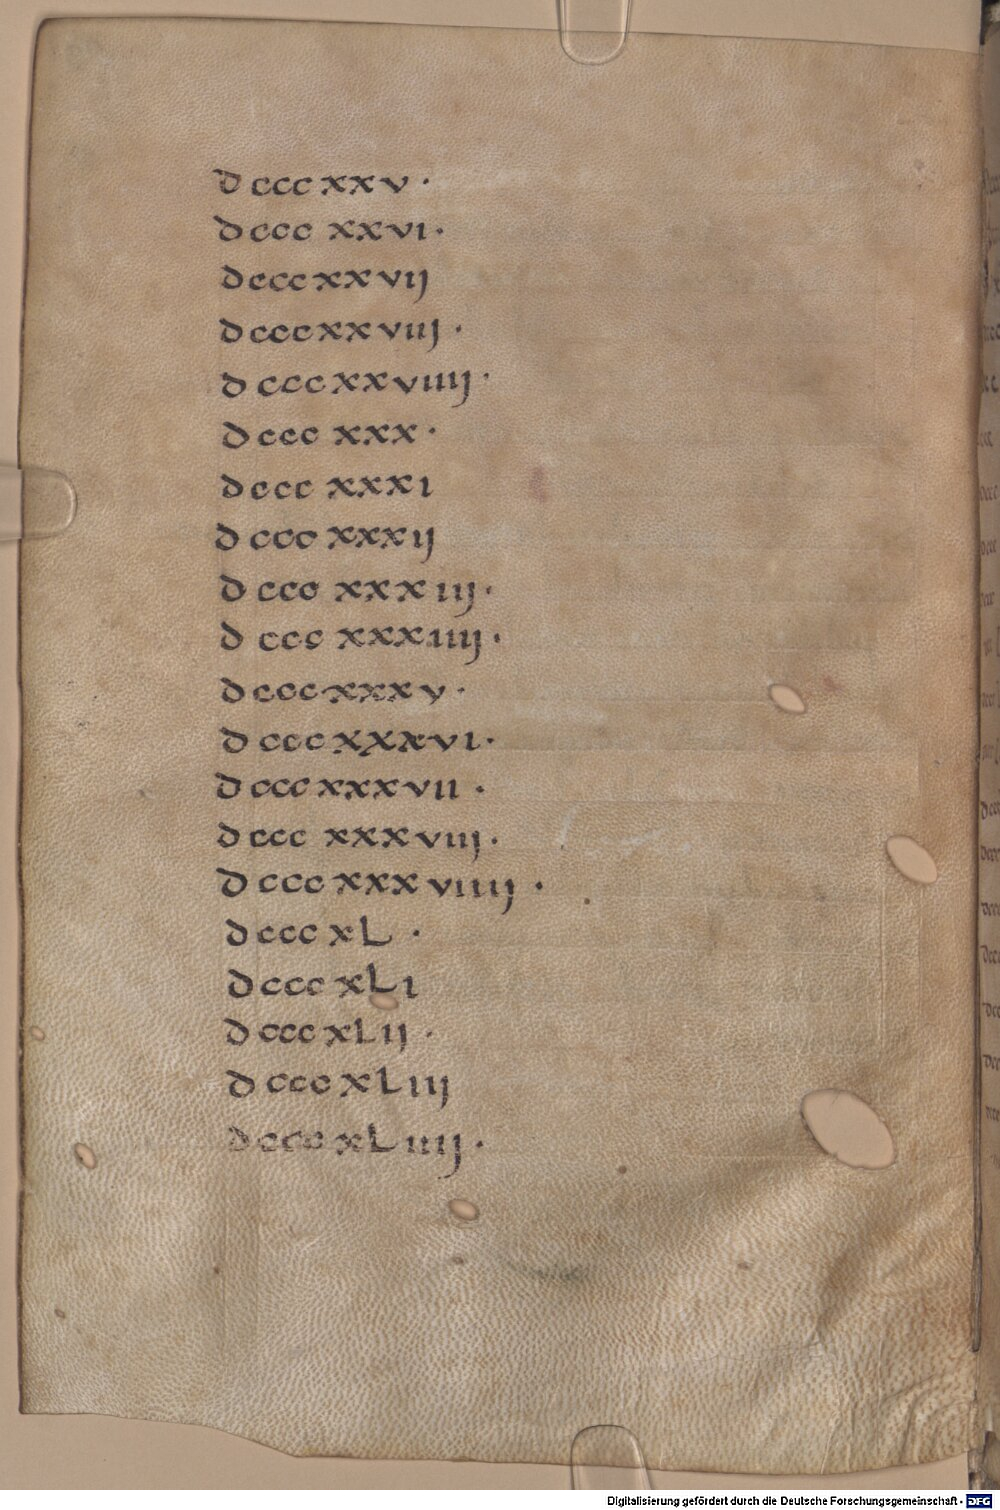 dcccxxv ·
dccc xxvi ·
dcccxxvij
dcccxxviij ·
dcccxxviiij ·
dccc xxx ·
dccc xxxi
dccc xxxij
dccc xxxiij ·
dccc xxxiiij ·
dcccxxxv ·
dccc xxxvi ·
dccc xxxvii ·
dccc xxxviij ·
dccc xxxviiij ·
dccc xL ·
dccc xLi
dccc xLij ·
dccc xLiij
dccc xLiiij ·
Digitalisierung gefördert durch die Deutsche Forschungsgemeinschaft - DFG